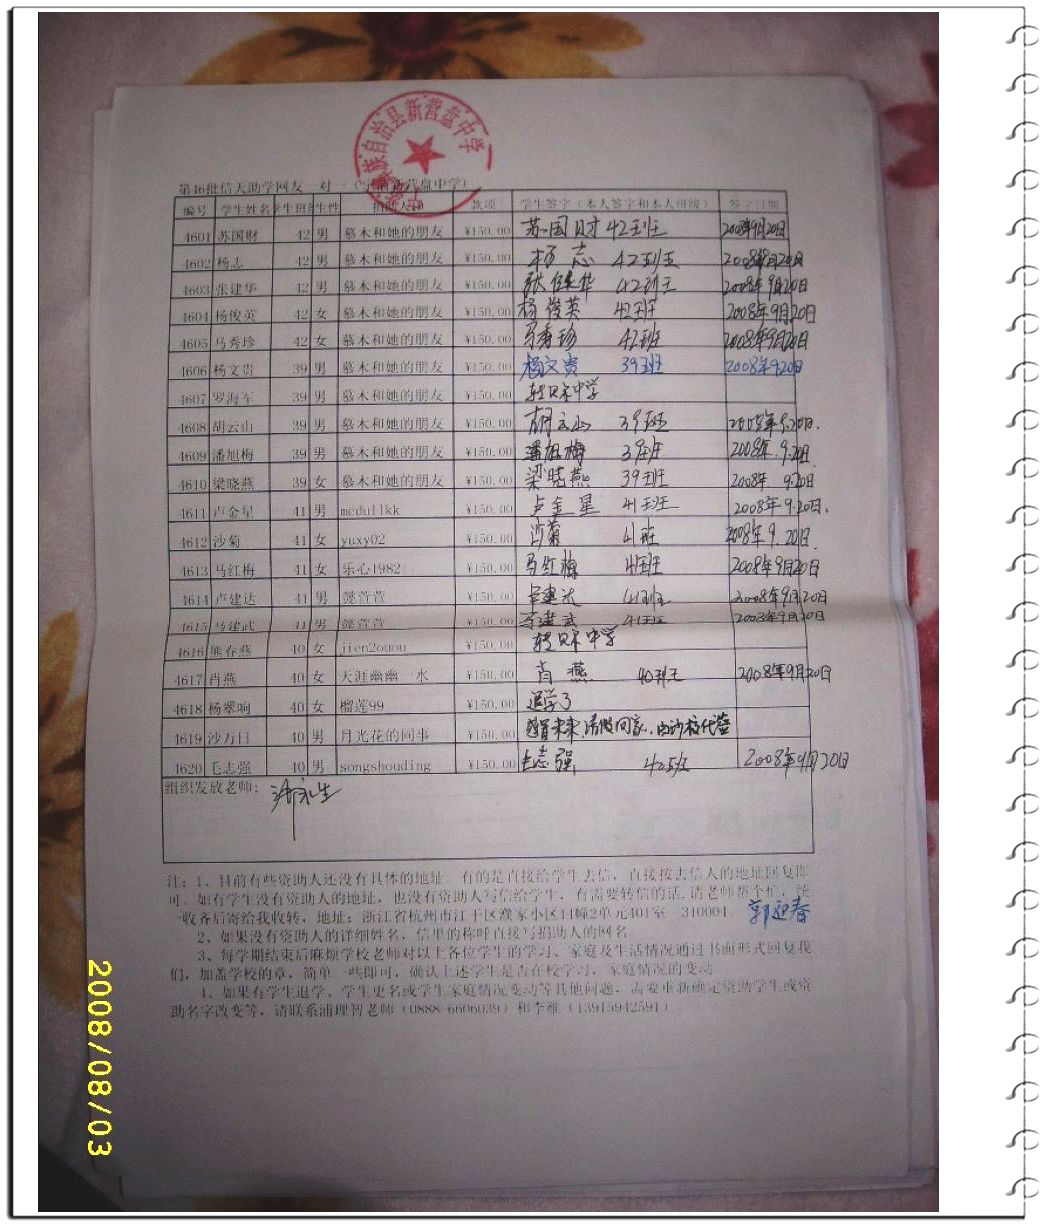 族自治县新营盘中学
第46批信天助学网友一对一
编号 学生姓名 学生班级 性 捐助人ID 款项 学生签字（本人签字和本人班级） 签字日期
4601 苏国财 42 男 慕木和她的朋友 ¥150.00 苏国财 42班 2008年9月20日
4602 杨志 42 男 慕木和她的朋友 ¥150.00 杨志 42班 2008年9月20日
4603 张建华 42 男 慕木和她的朋友 ¥150.00 张建华 42班 2008年9月20日
4604 杨俊英 42 女 慕木和她的朋友 ¥150.00 杨俊英 42班 2008年9月20日
4605 马秀珍 42 女 慕木和她的朋友 ¥150.00 马秀珍 42班 2008年9月20日
4606 杨文贵 39 男 慕木和她的朋友 ¥150.00 杨文贵 39班 2008年9月20日
4607 罗海军 39 男 慕木和她的朋友 ¥150.00 转贝尔中学
4608 胡云山 39 男 慕木和她的朋友 ¥150.00 胡云山 39班 2008年9.20日.
4609 潘旭梅 39 男 慕木和她的朋友 ¥150.00 潘旭梅 39班 2008年.9.20日.
4610 梁晓燕 39 女 慕木和她的朋友 ¥150.00 梁晓燕 39班 2008年 9.20日
4611 卢金星 41 男 mcdullkk ¥150.00 卢金星 41班 2008年9.20日.
4612 沙菊 41 女 yuxy02 ¥150.00 沙菊 41班 2008年9.20日.
4613 马红梅 41 女 乐心1982 ¥150.00 马红梅 41班 2008年9月20日
4614 卢建达 41 男 懿萱萱 ¥150.00 卢建达 41班 2008年9月20日
4615 马建武 41 男 懿萱萱 ¥150.00 马建武 41班 2008年9月20日
4616 熊春燕 40 女 jien2ouou ¥150.00 转贝尔中学
4617 肖燕 40 女 天涯幽幽一水 ¥150.00 肖燕 40班 2008年9月20日
4618 杨翠响 40 女 榴莲99 ¥150.00 退学了
4619 沙万日 40 男 月光花的同事 ¥150.00 未来,请假回家,由沙校代签
4620 毛志强 40 男 songshouding ¥150.00 毛志强 40班 2008年9月20日
组织发放老师：
注：1、目前有些资助人还没有具体的地址。有的是直接给学生去信，直接按去信人的地址回复即
可。如有学生没有资助人的地址，也没有资助人写信给学生，有需要转信的话,请老师帮个忙，统
一收齐后寄给我收转，地址：浙江省杭州市江干区濮家小区14幢2单元401室 310004 郭迎春
2、如果没有资助人的详细姓名，信里的称呼直接写捐助人的网名
3、每学期结束后麻烦学校老师对以上各位学生的学习、家庭及生活情况通过书面形式回复我
们，加盖学校的章，简单一些即可，确认上述学生是否在校学习，家庭情况的变动
4、如果有学生退学、学生更名或学生家庭情况变动等其他问题，需要重新确定资助学生或资
助名字改变等，请联系浦理智老师（0888-6606039）和李雁（13915942591）
2008/08/03